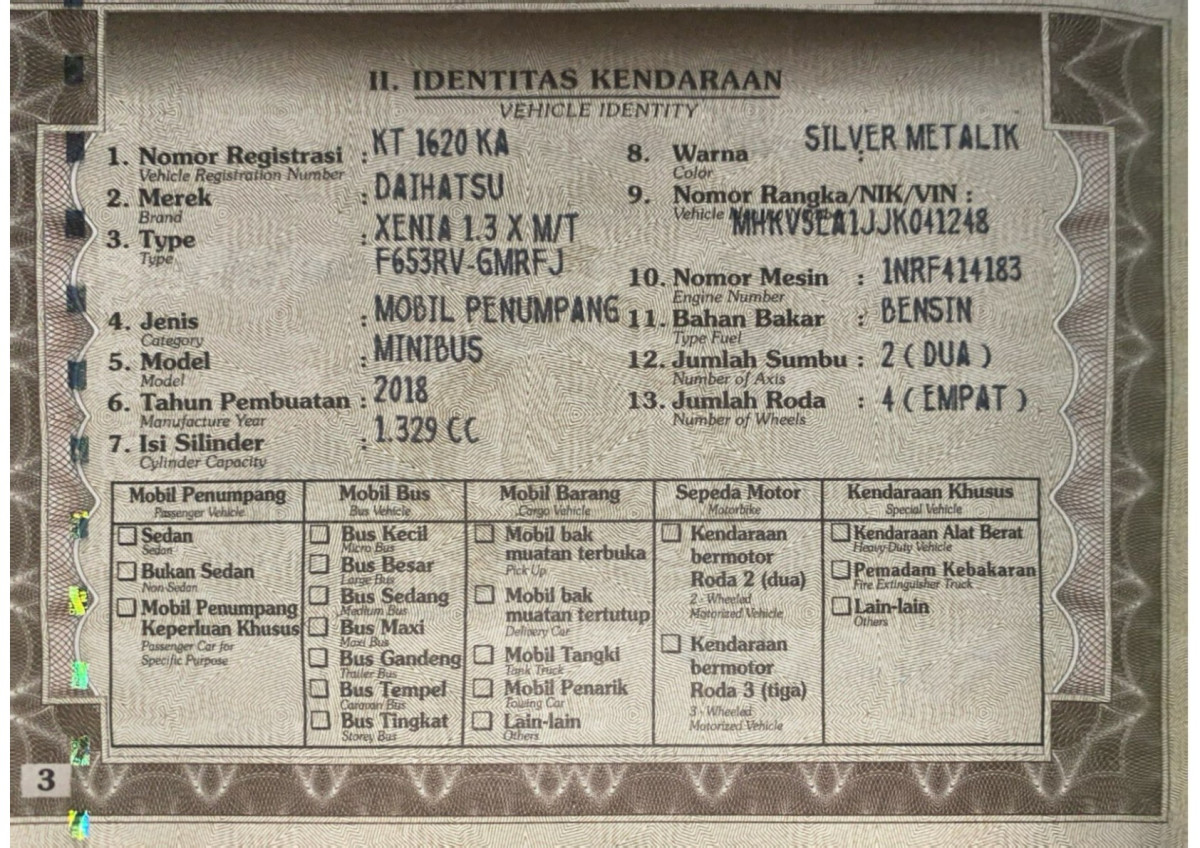 II. IDENTITAS KENDARAAN
VEHICLE IDENTITY
1. Nomor Registrasi : KT 1620 KA
Vehicle Registration Number
2. Merek : DAIHATSU
Brand
3. Type : XENIA 1.3 X M/T
Type
F653RV-GMRFJ
4. Jenis : MOBIL PENUMPANG
Category
5. Model : MINIBUS
Model
6. Tahun Pembuatan : 2018
Manufacture Year
7. Isi Silinder : 1.329 CC
Cylinder Capacity
8. Warna : SILVER METALIK
Color
9. Nomor Rangka/NIK/VIN :
Vehicle
MHKV5EA1JJK041248
10. Nomor Mesin : 1NRF414183
Engine Number
11. Bahan Bakar : BENSIN
Type Fuel
12. Jumlah Sumbu : 2 ( DUA )
Number of Axis
13. Jumlah Roda : 4 ( EMPAT )
Number of Wheels
Mobil Penumpang
Passenger Vehicle
Sedan
Sedan
Bukan Sedan
Non-Sedan
Mobil Penumpang
Keperluan Khusus
Passenger Car for
Specific Purpose
Mobil Bus
Bus Vehicle
Bus Kecil
Micro Bus
Bus Besar
Large Bus
Bus Sedang
Medium Bus
Bus Maxi
Maxi Bus
Bus Gandeng
Trailer Bus
Bus Tempel
Caravan Bus
Bus Tingkat
Storey Bus
Mobil Barang
Cargo Vehicle
Mobil bak
muatan terbuka
Pick Up
Mobil bak
muatan tertutup
Delivery Car
Mobil Tangki
Tank Truck
Mobil Penarik
Towing Car
Lain-lain
Others
Sepeda Motor
Motorbike
Kendaraan
bermotor
Roda 2 (dua)
2 - Wheeled
Motorized Vehicle
Kendaraan
bermotor
Roda 3 (tiga)
3 - Wheeled
Motorized Vehicle
Kendaraan Khusus
Special Vehicle
Kendaraan Alat Berat
Heavy-Duty Vehicle
Pemadam Kebakaran
Fire Extinguisher Truck
Lain-lain
Others
3